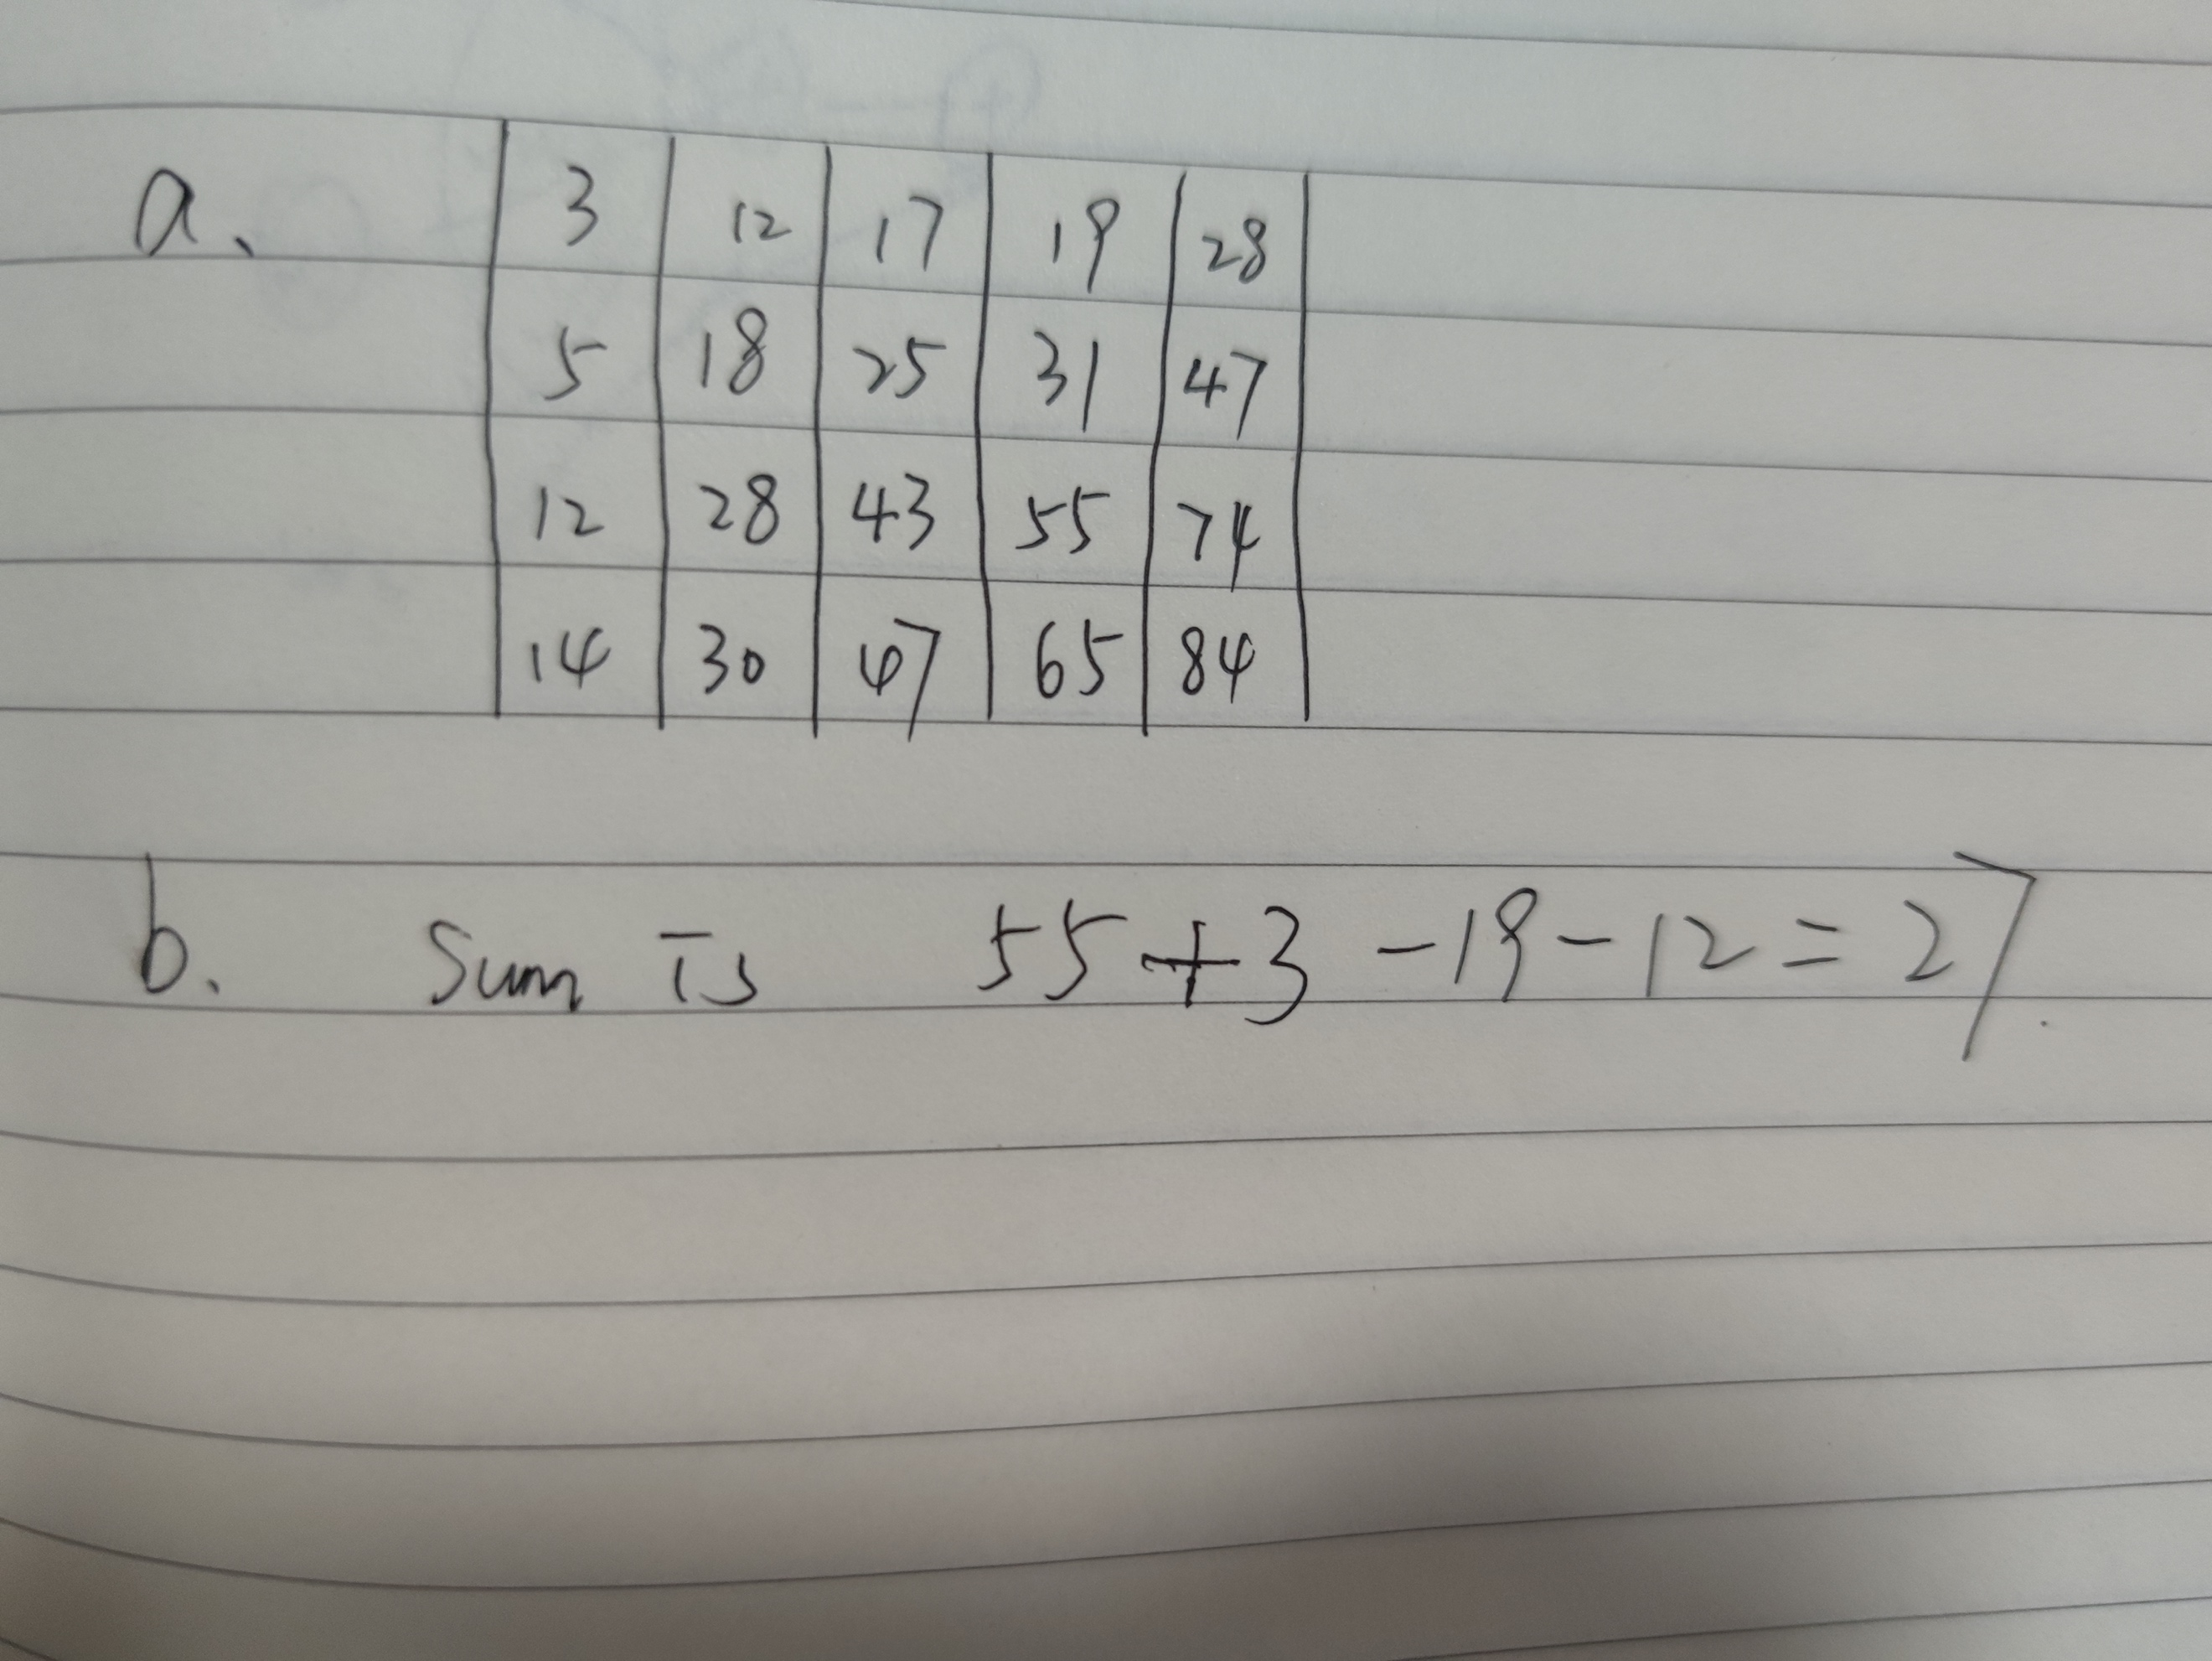 a. 3 12 17 19 28
5 18 25 31 47
12 28 43 55 74
14 30 47 65 84
b. Sum is 55+3-19-12=27.